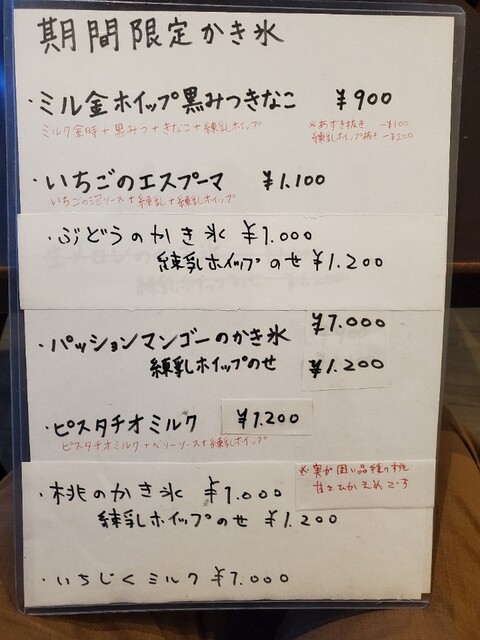 期間限定かき氷
・ミル金ホイップ黒みつきなこ ¥900
ミルク金時+黒みつ+きなこ+練乳ホイップ ※あずき抜き -¥100
練乳ホイップ抜き -¥200
・いちごのエスプーマ ¥1.100
いちごの泡ソース+練乳+練乳ホイップ
・ぶどうのかき氷 ¥1.000
練乳ホイップのせ ¥1.200
・パッションマンゴーのかき氷 ¥1.000
練乳ホイップのせ ¥1.200
・ピスタチオミルク ¥1.200
ピスタチオミルク+ベリーソース+練乳ホイップ
・桃のかき氷 ¥1.000
※実が固い品種の桃
甘さひかえめです
練乳ホイップのせ ¥1.200
・いちじくミルク ¥1.000